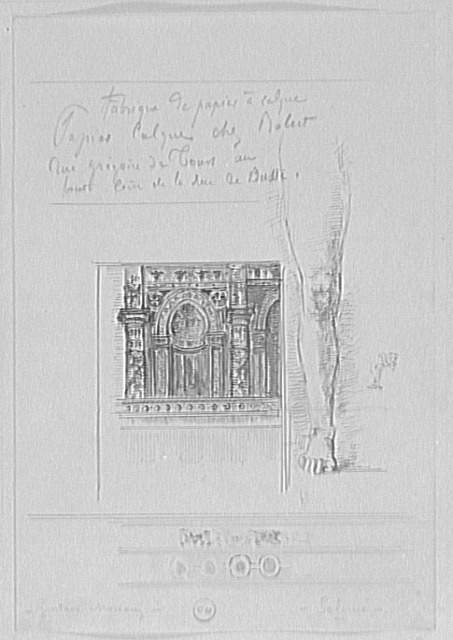 Fabrique de papier à calque
Papier Calque chez Robert
Rue grégoire de Tours au
bout Coin de la Rue de Bussi.
- Gustave Moreau -